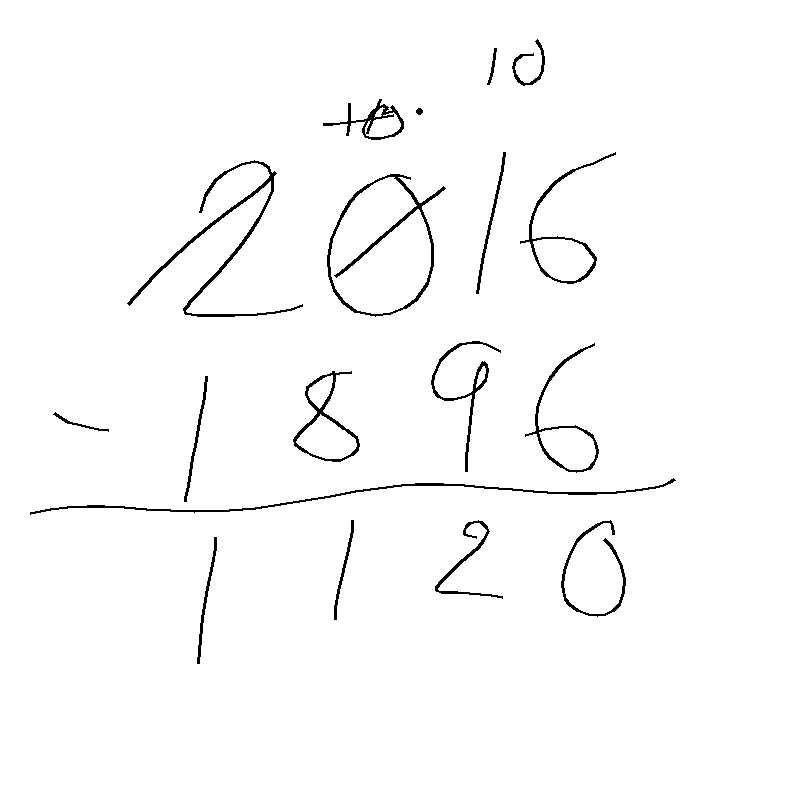 10
+10
2016
- 1896
1120